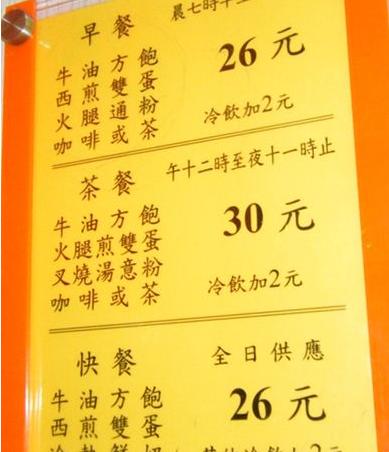 早餐
晨七時
26元
牛油方飽
西煎雙蛋
火腿通粉
咖啡或茶
冷飲加2元
茶餐
午十二時至夜十一時止
牛油方飽
火腿煎雙蛋
叉燒湯意粉
咖啡或茶
30元
冷飲加2元
快餐
全日供應
牛油方飽
西煎雙蛋
26元